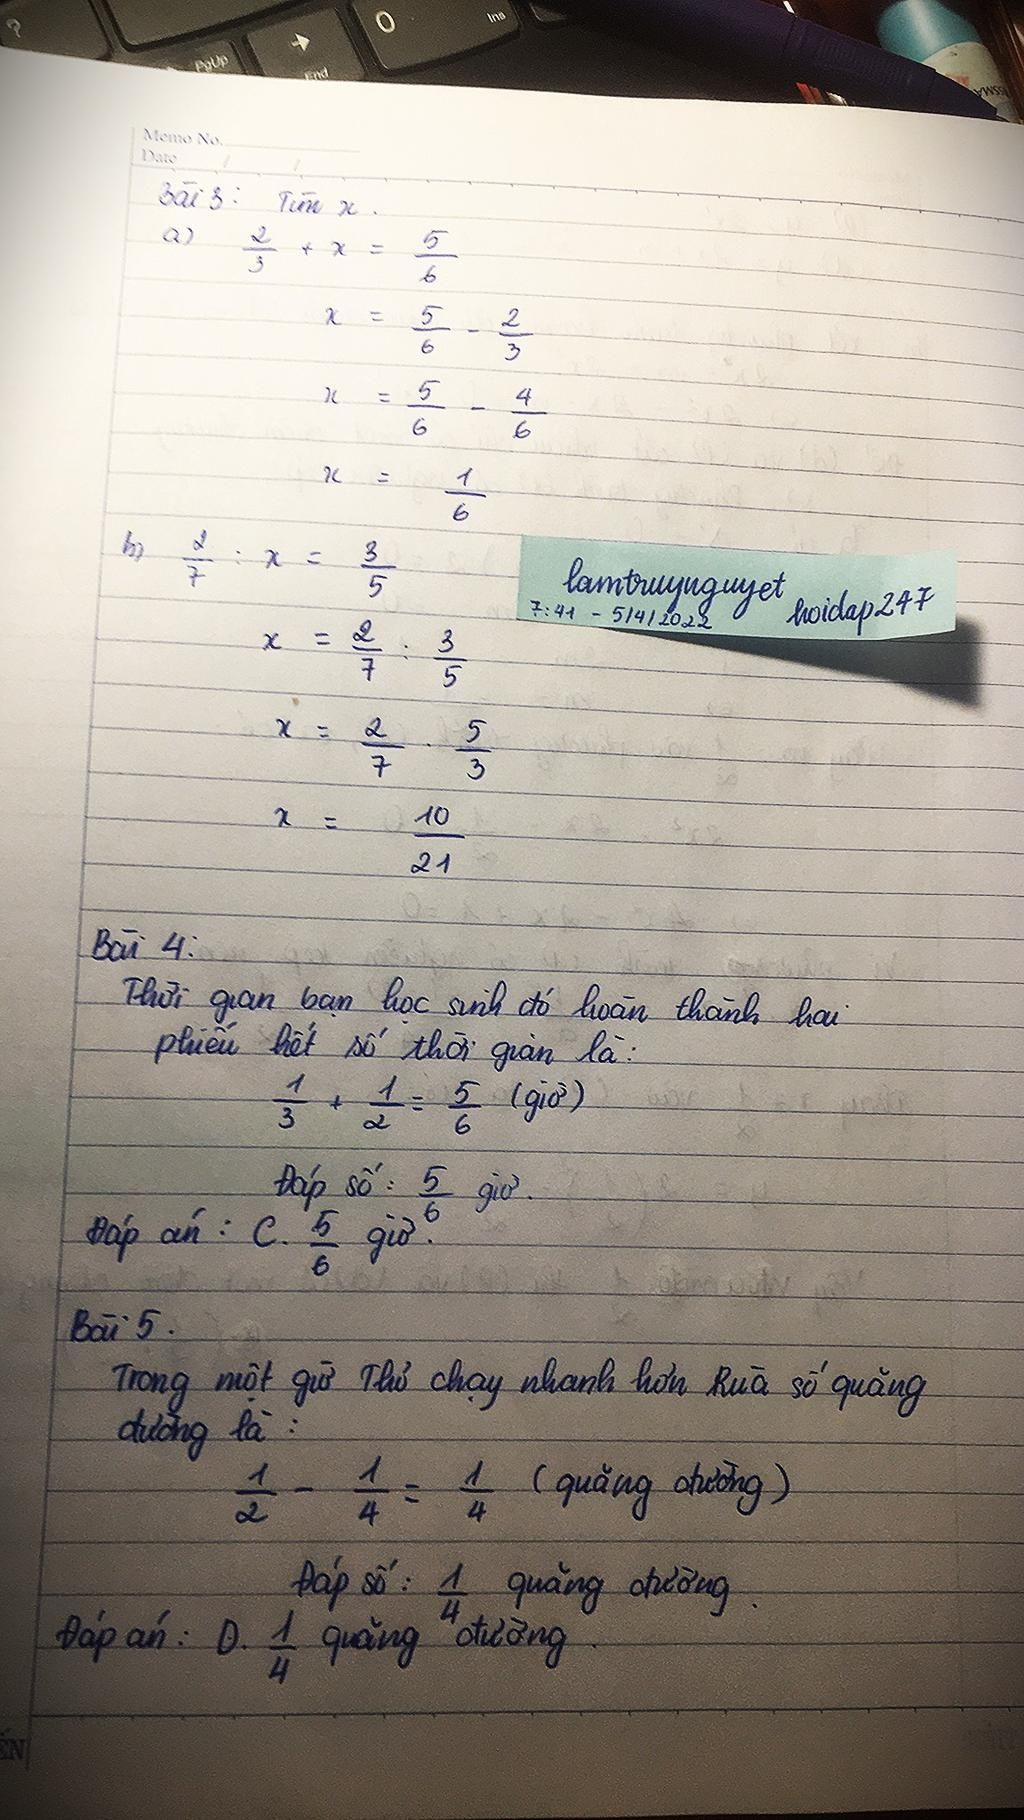 ?
PgUp
End
O
Ins
Memo No.
Date
Bài 3: Tìm x.
a) 2/3 + x = 5/6
x = 5/6 - 2/3
x = 5/6 - 4/6
x = 1/6
b) 2/7 : x = 3/5
x = 2/7 : 3/5
x = 2/7 . 5/3
x = 10/21
lamtruynguyet
7:41 - 5/4/2022 hoidap247
Bài 4:
Thời gian bạn học sinh đó hoàn thành hai
phiếu hết số thời gian là:
1/3 + 1/2 = 5/6 (giờ)
Đáp số: 5/6 giờ.
Đáp án: C. 5/6 giờ.
Bài 5.
Trong một giờ Thỏ chạy nhanh hơn Rùa số quãng
đường là:
1/2 - 1/4 = 1/4 (quãng đường)
Đáp số: 1/4 quãng đường.
Đáp án: D. 1/4 quãng đường.